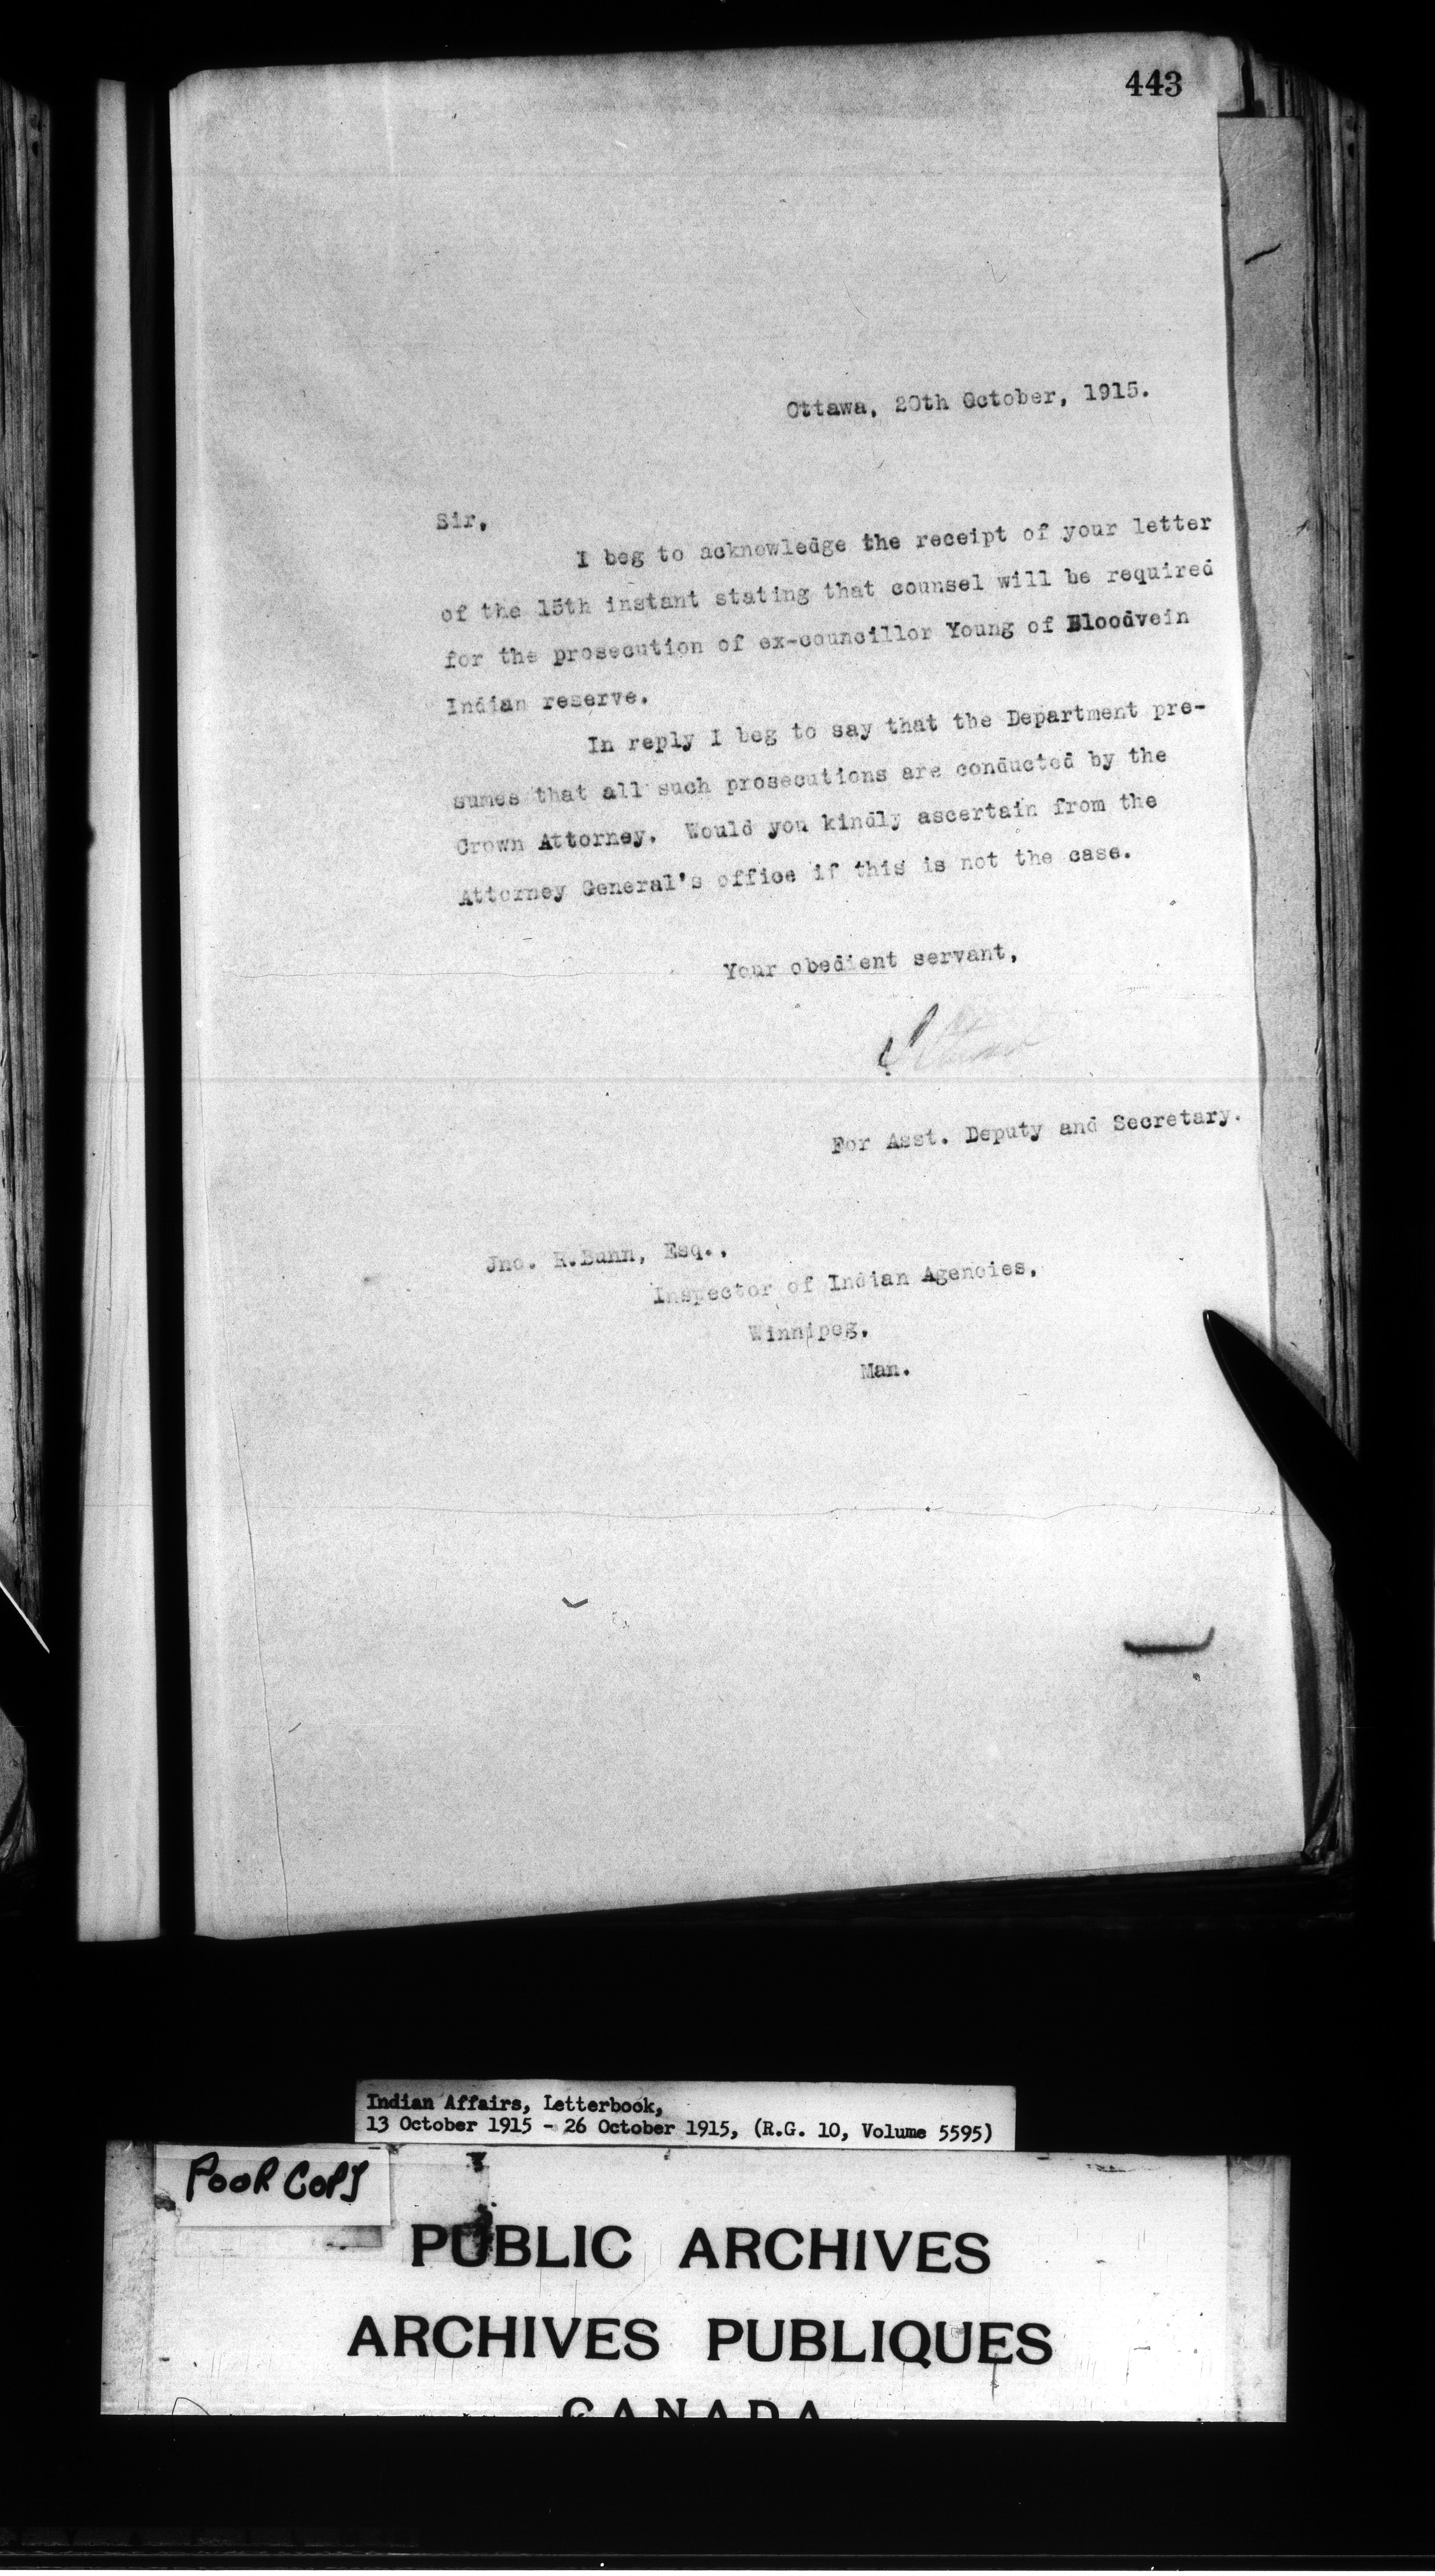 443
Ottawa, 20th October, 1915.
Sir,
I beg to acknowledge the receipt of your letter
of the 15th instant stating that counsel will be required
for the prosecution of ex-councillor Young of Bloodvein
Indian reserve.
In reply I beg to say that the Department pre-
sumes that all such prosecutions are conducted by the
Crown Attorney. Would you kindly ascertain from the
Attorney General's office if this is not the case.
Your obedient servant,
For Asst. Deputy and Secretary.
Jno. R.Bunn, Esq.,
Inspector of Indian Agencies,
Winnipeg,
Man.
Indian Affairs, Letterbook,
13 October 1915 - 26 October 1915, (R.G. 10, Volume 5595)
POOR COPY
PUBLIC ARCHIVES
ARCHIVES PUBLIQUES
CANADA